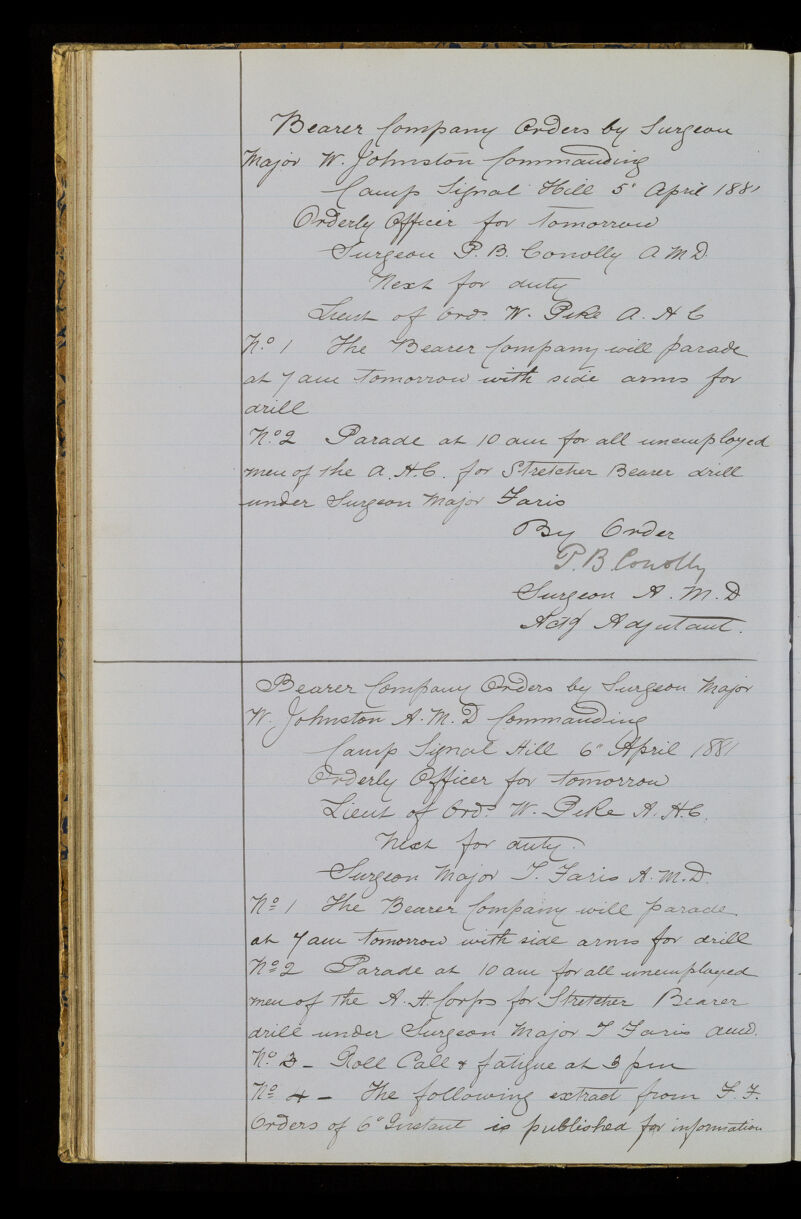 Bearer Company Orders by Surgeon
Major W. Johnston Commanding
Camp Signal Hill 5' April 1881
Orderly Officer for Tomorrow
Surgeon P. B. Conolly A M D.
Next for duty
Lieut of Ord. W. Pike A. H C
No. 1 The Bearer Company will parade
at 7 am Tomorrow with side arms for
drill
No. 2 Parade at 10 am for all unemployed
men of the A. H. C. for Stretcher Bearer drill
under Surgeon Major Faris
By Order
P. B. Conolly
Surgeon A. M. D
Actg Adjutant.
Bearer Company Orders by Surgeon Major
W. Johnston A. M. D Commanding
Camp Signal Hill 6" April 1881
Orderly Officer for tomorrow
Lieut of Ord. W. Pike A. H. C.
Next for duty.
Surgeon Major T. Faris A. M. D.
No 1 The Bearer Company will parade
at 7 am Tomorrow with side arms for drill
No 2 Parade at 10 am for all unemployed
men of the A. H. Corps for Stretcher Bearer
drill under Surgeon Major T Faris amd.
No 3 - Roll Call & fatigue at 3 pm
No 4 - The following extract from F. F.
Orders of 6o Instant is published for information